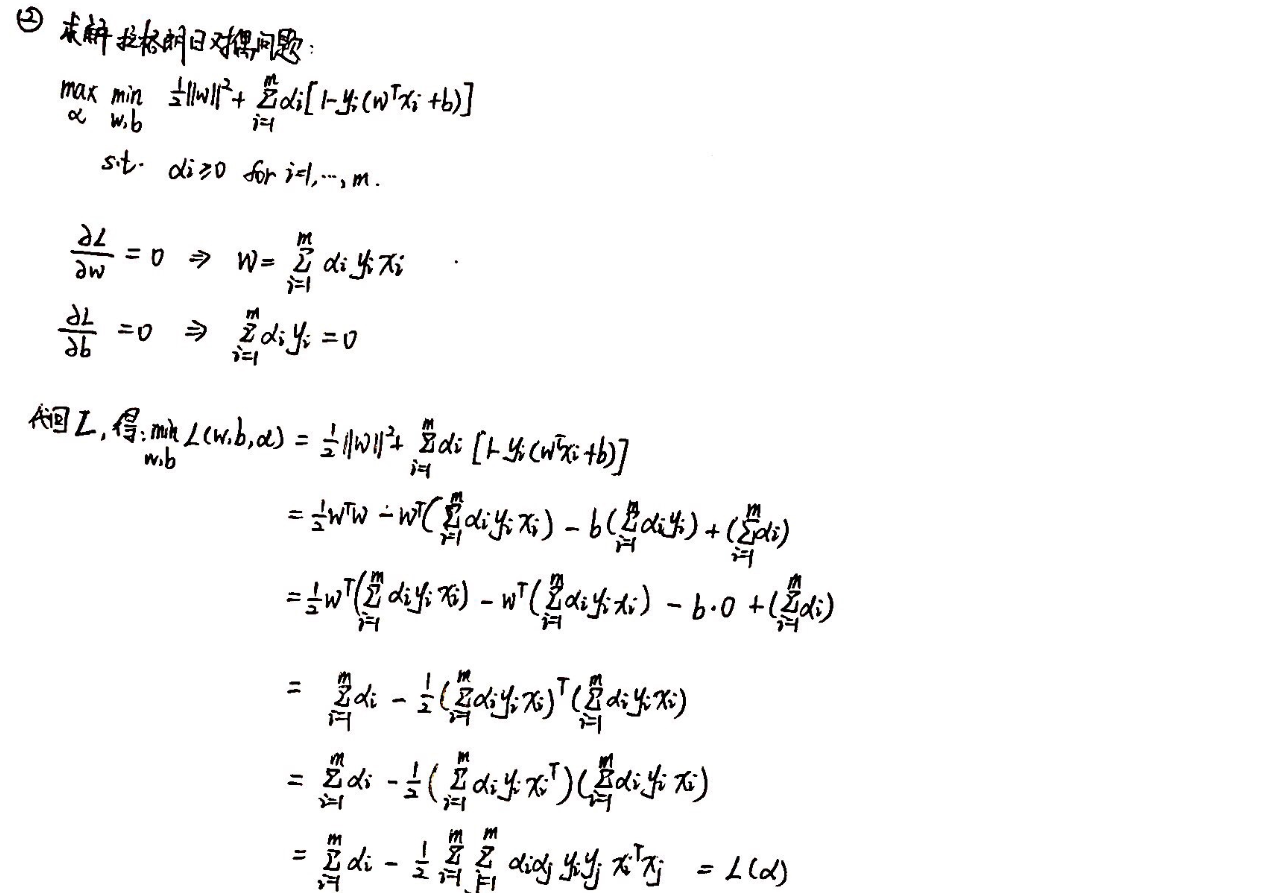 ② 求解拉格朗日对偶问题:
max min 1/2||w||² + Σ_{i=1}^{m} αi[1-yi(wᵀxi+b)]
α w,b
s.t. αi≥0 for i=1,…,m.
∂L/∂w = 0 ⇒ w = Σ_{i=1}^{m} αi yi xi
∂L/∂b = 0 ⇒ Σ_{i=1}^{m} αi yi = 0
代回L,得: min_{w,b} L(w,b,α) = 1/2||w||² + Σ_{i=1}^{m} αi [1-yi(wᵀxi+b)]
= 1/2 wᵀw - wᵀ(Σ_{i=1}^{m} αi yi xi) - b(Σ_{i=1}^{m} αi yi) + (Σ_{i=1}^{m} αi)
= 1/2 wᵀ(Σ_{i=1}^{m} αi yi xi) - wᵀ(Σ_{i=1}^{m} αi yi xi) - b·0 + (Σ_{i=1}^{m} αi)
= Σ_{i=1}^{m} αi - 1/2 (Σ_{i=1}^{m} αi yi xi)ᵀ(Σ_{i=1}^{m} αi yi xi)
= Σ_{i=1}^{m} αi - 1/2 (Σ_{i=1}^{m} αi yi xiᵀ)(Σ_{i=1}^{m} αi yi xi)
= Σ_{i=1}^{m} αi - 1/2 Σ_{i=1}^{m} Σ_{j=1}^{m} αi αj yi yj xiᵀxj = L(α)